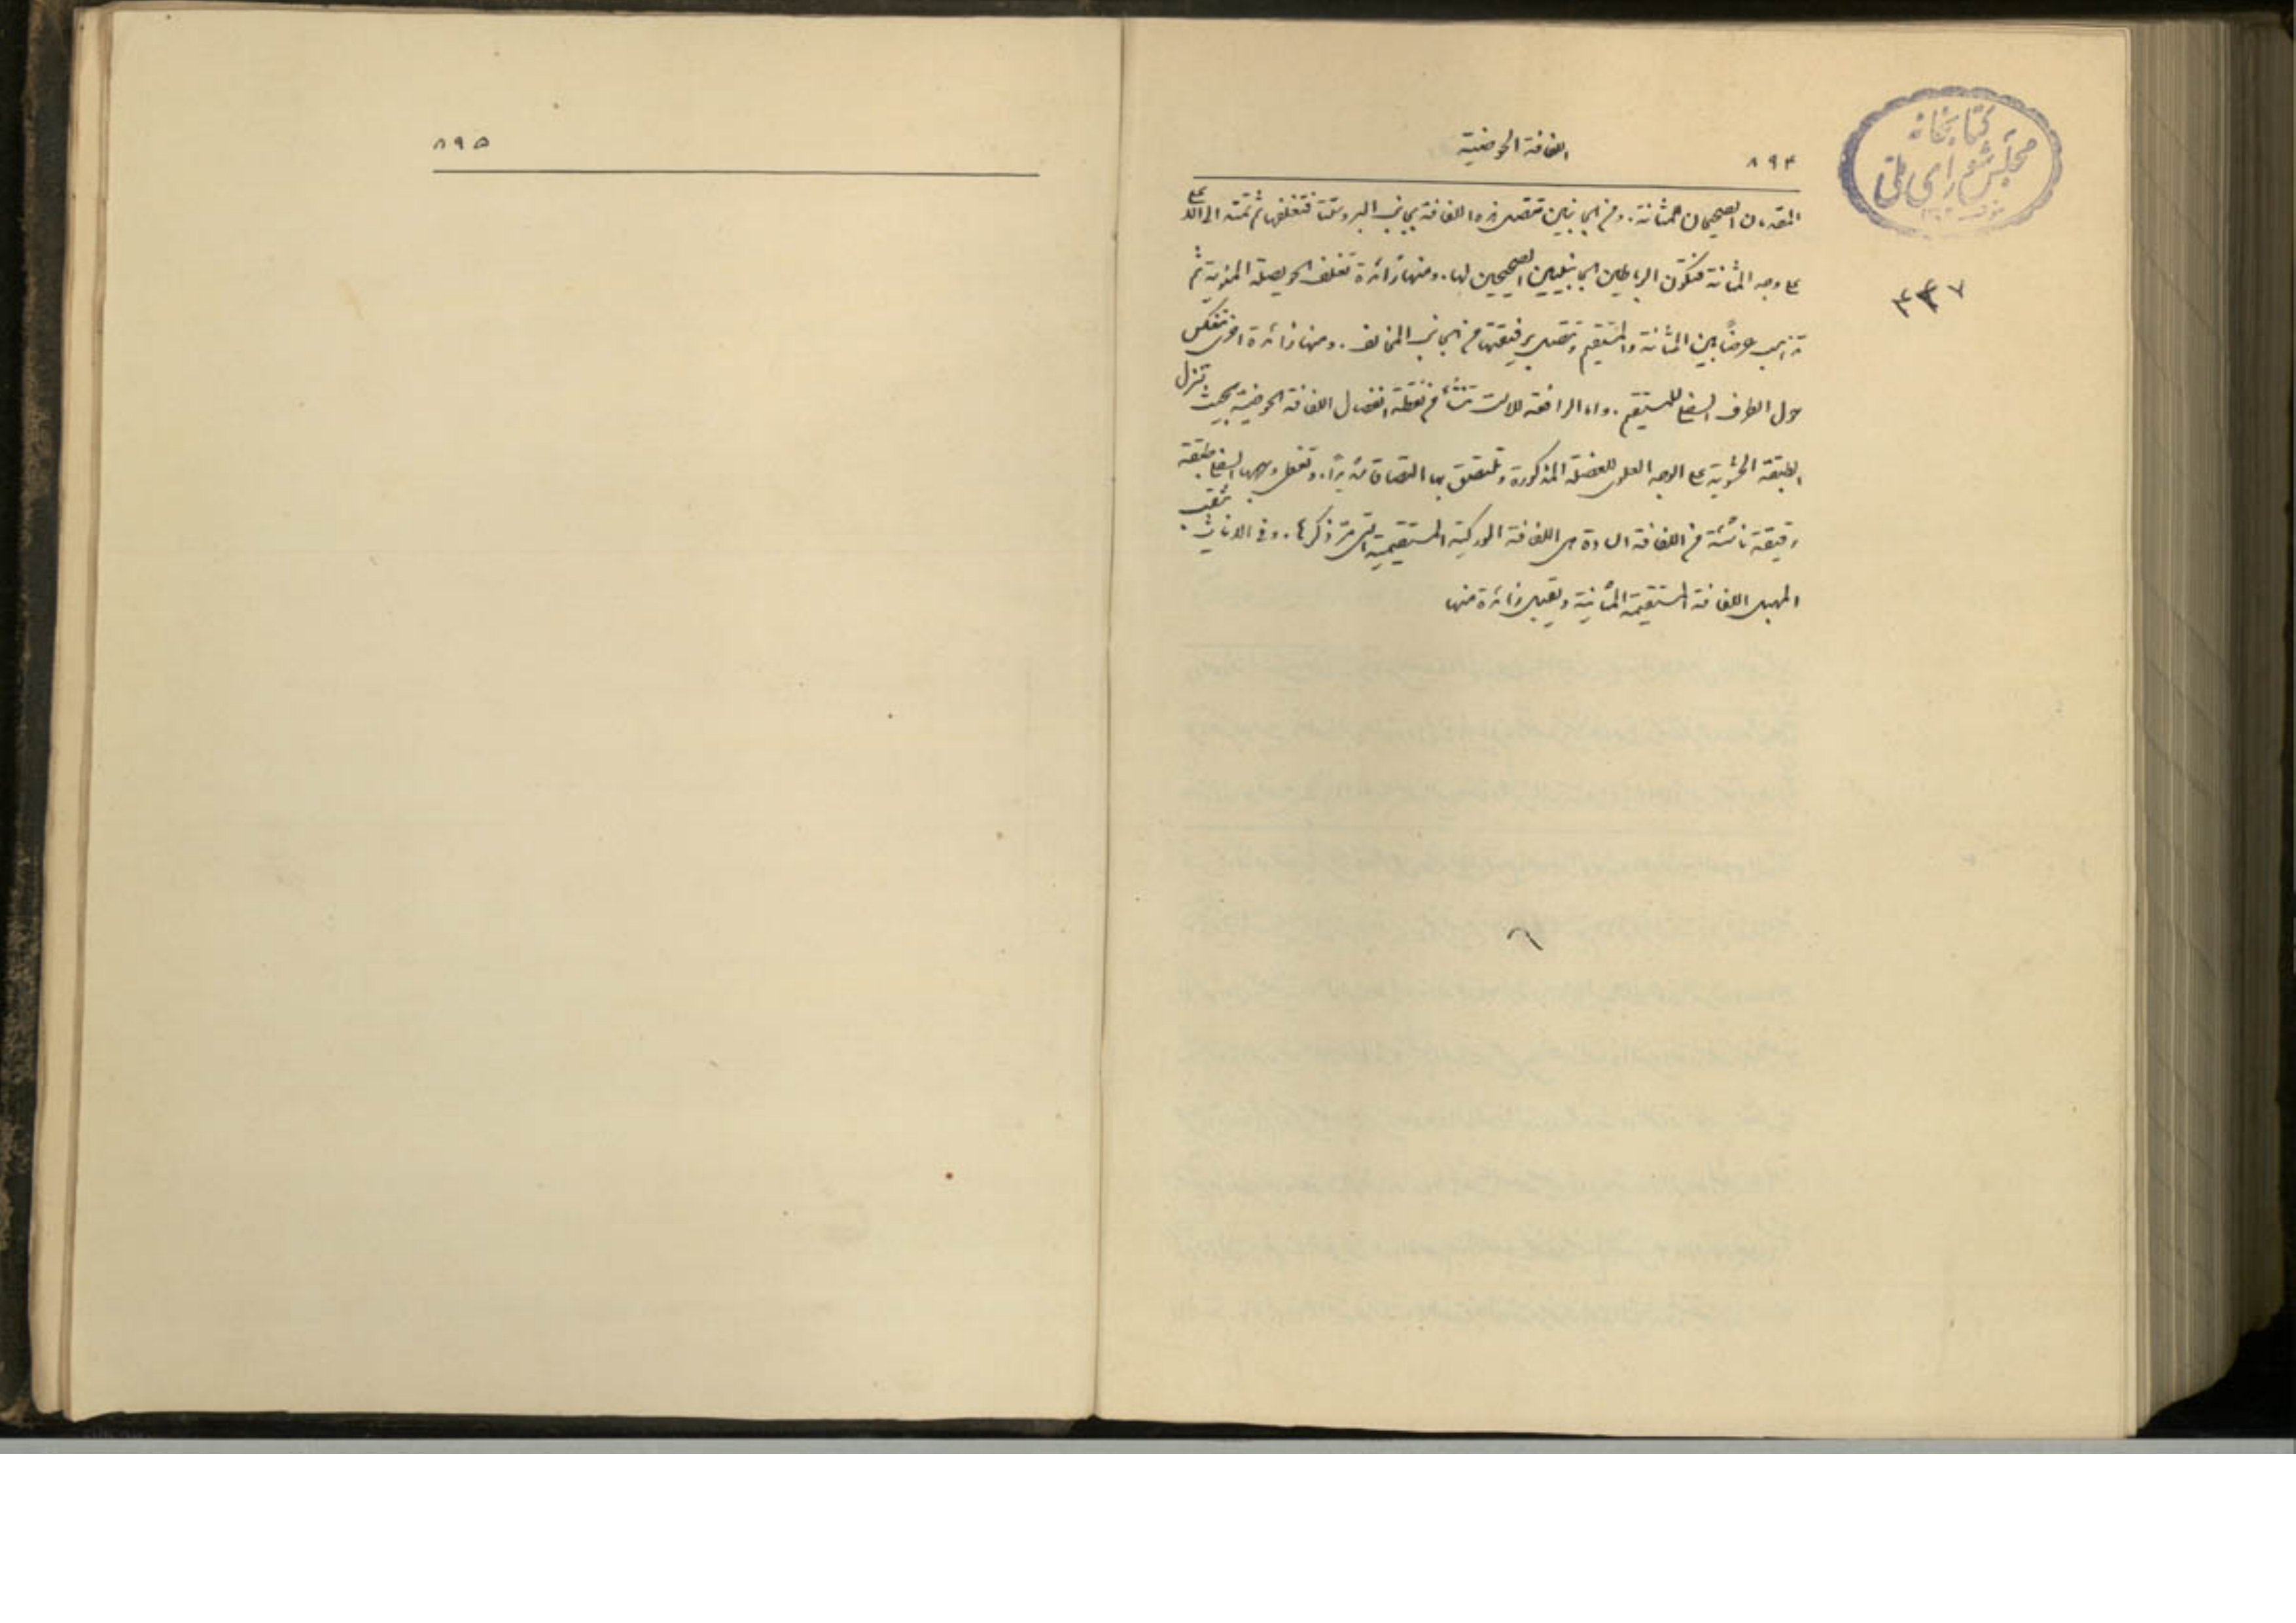 ٨٩٤
اللفافة الحوضية
المقدمان الصحيحان للمثانة . ومن الجانبين تتصل هذه اللفافة بجانب البروستتا فتغلفها ثم تمتد الى الاعلى
على وجه المثانة فتكون الرباطين الجانبيين الصحيحين لها . ومنها زائدة تغلف الحويصلة المنوية ثم
تذهب عرضاً بين المثانة والمستقيم وتتصل برفيقتها من الجانب المخالف . ومنها زائدة اخرى تنعكس
حول الطرف السفلي للمستقيم . واما الرافعة للاست تنشأ من نقطة انفصال اللفافة الحوضية بحيث تنزل
الطبقة الحشوية على الوجه العلوي للعضلة المذكورة وتلتصق بها التصاقا شديداً . وتغطي وجهها السفلي طبقة
رقيقة ناشئة من اللفافة السادة هي اللفافة الوركية المستقيمية التي مرّ ذكرها . وفي الاناث يثقب
المهبل اللفافة المستقيمية المثانية ويقبل زائدة منها
٨٩٥
كتابخانه
مجلس شورای ملی
٣٤٧